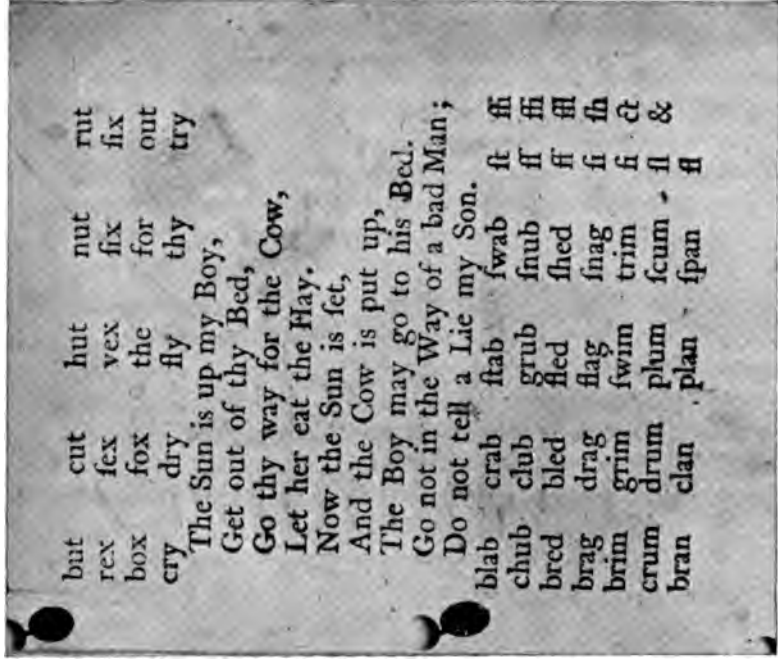 but cut hut nut rut
rex ſex vex ſix fix
box fox the for out
cry dry fly thy try
The Sun is up my Boy,
Get out of thy Bed,
Go thy way for the Cow,
Let her eat the Hay.
Now the Sun is ſet,
And the Cow is put up,
The Boy may go to his Bed.
Go not in the Way of a bad Man;
Do not tell a Lie my Son.
blab crab ſtab ſwab ſt ſſi
chub club grub ſnub ſſ ffi
bred bled fled ſhed ff ffl
brag drag flag ſnag ſi ſh
brim grim ſwim trim fi ct
crum drum plum ſcum ſl &
bran clan plan ſpan fl